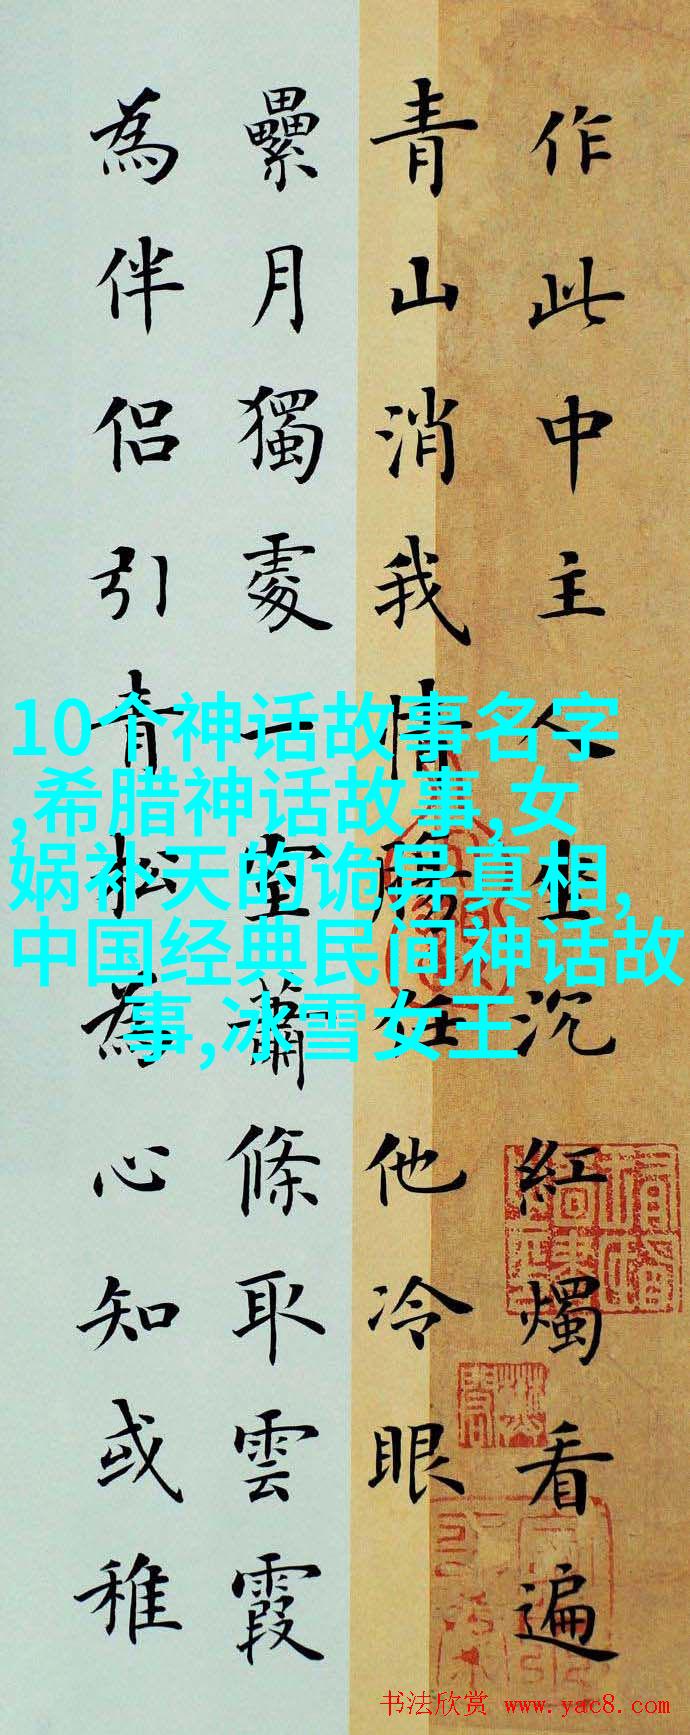 作此中主人坐沉紅燭看遍
青山消我情腸任他冷眼
纍月獨處一室蕭條取雲霞
為伴侶引青松為心知或稚
10个神话故事名字
,希腊神话故事,女
娲补天的诡异真相,
中国经典民间神话故
事,冰雪女王
书法欣赏 www.yac8.com